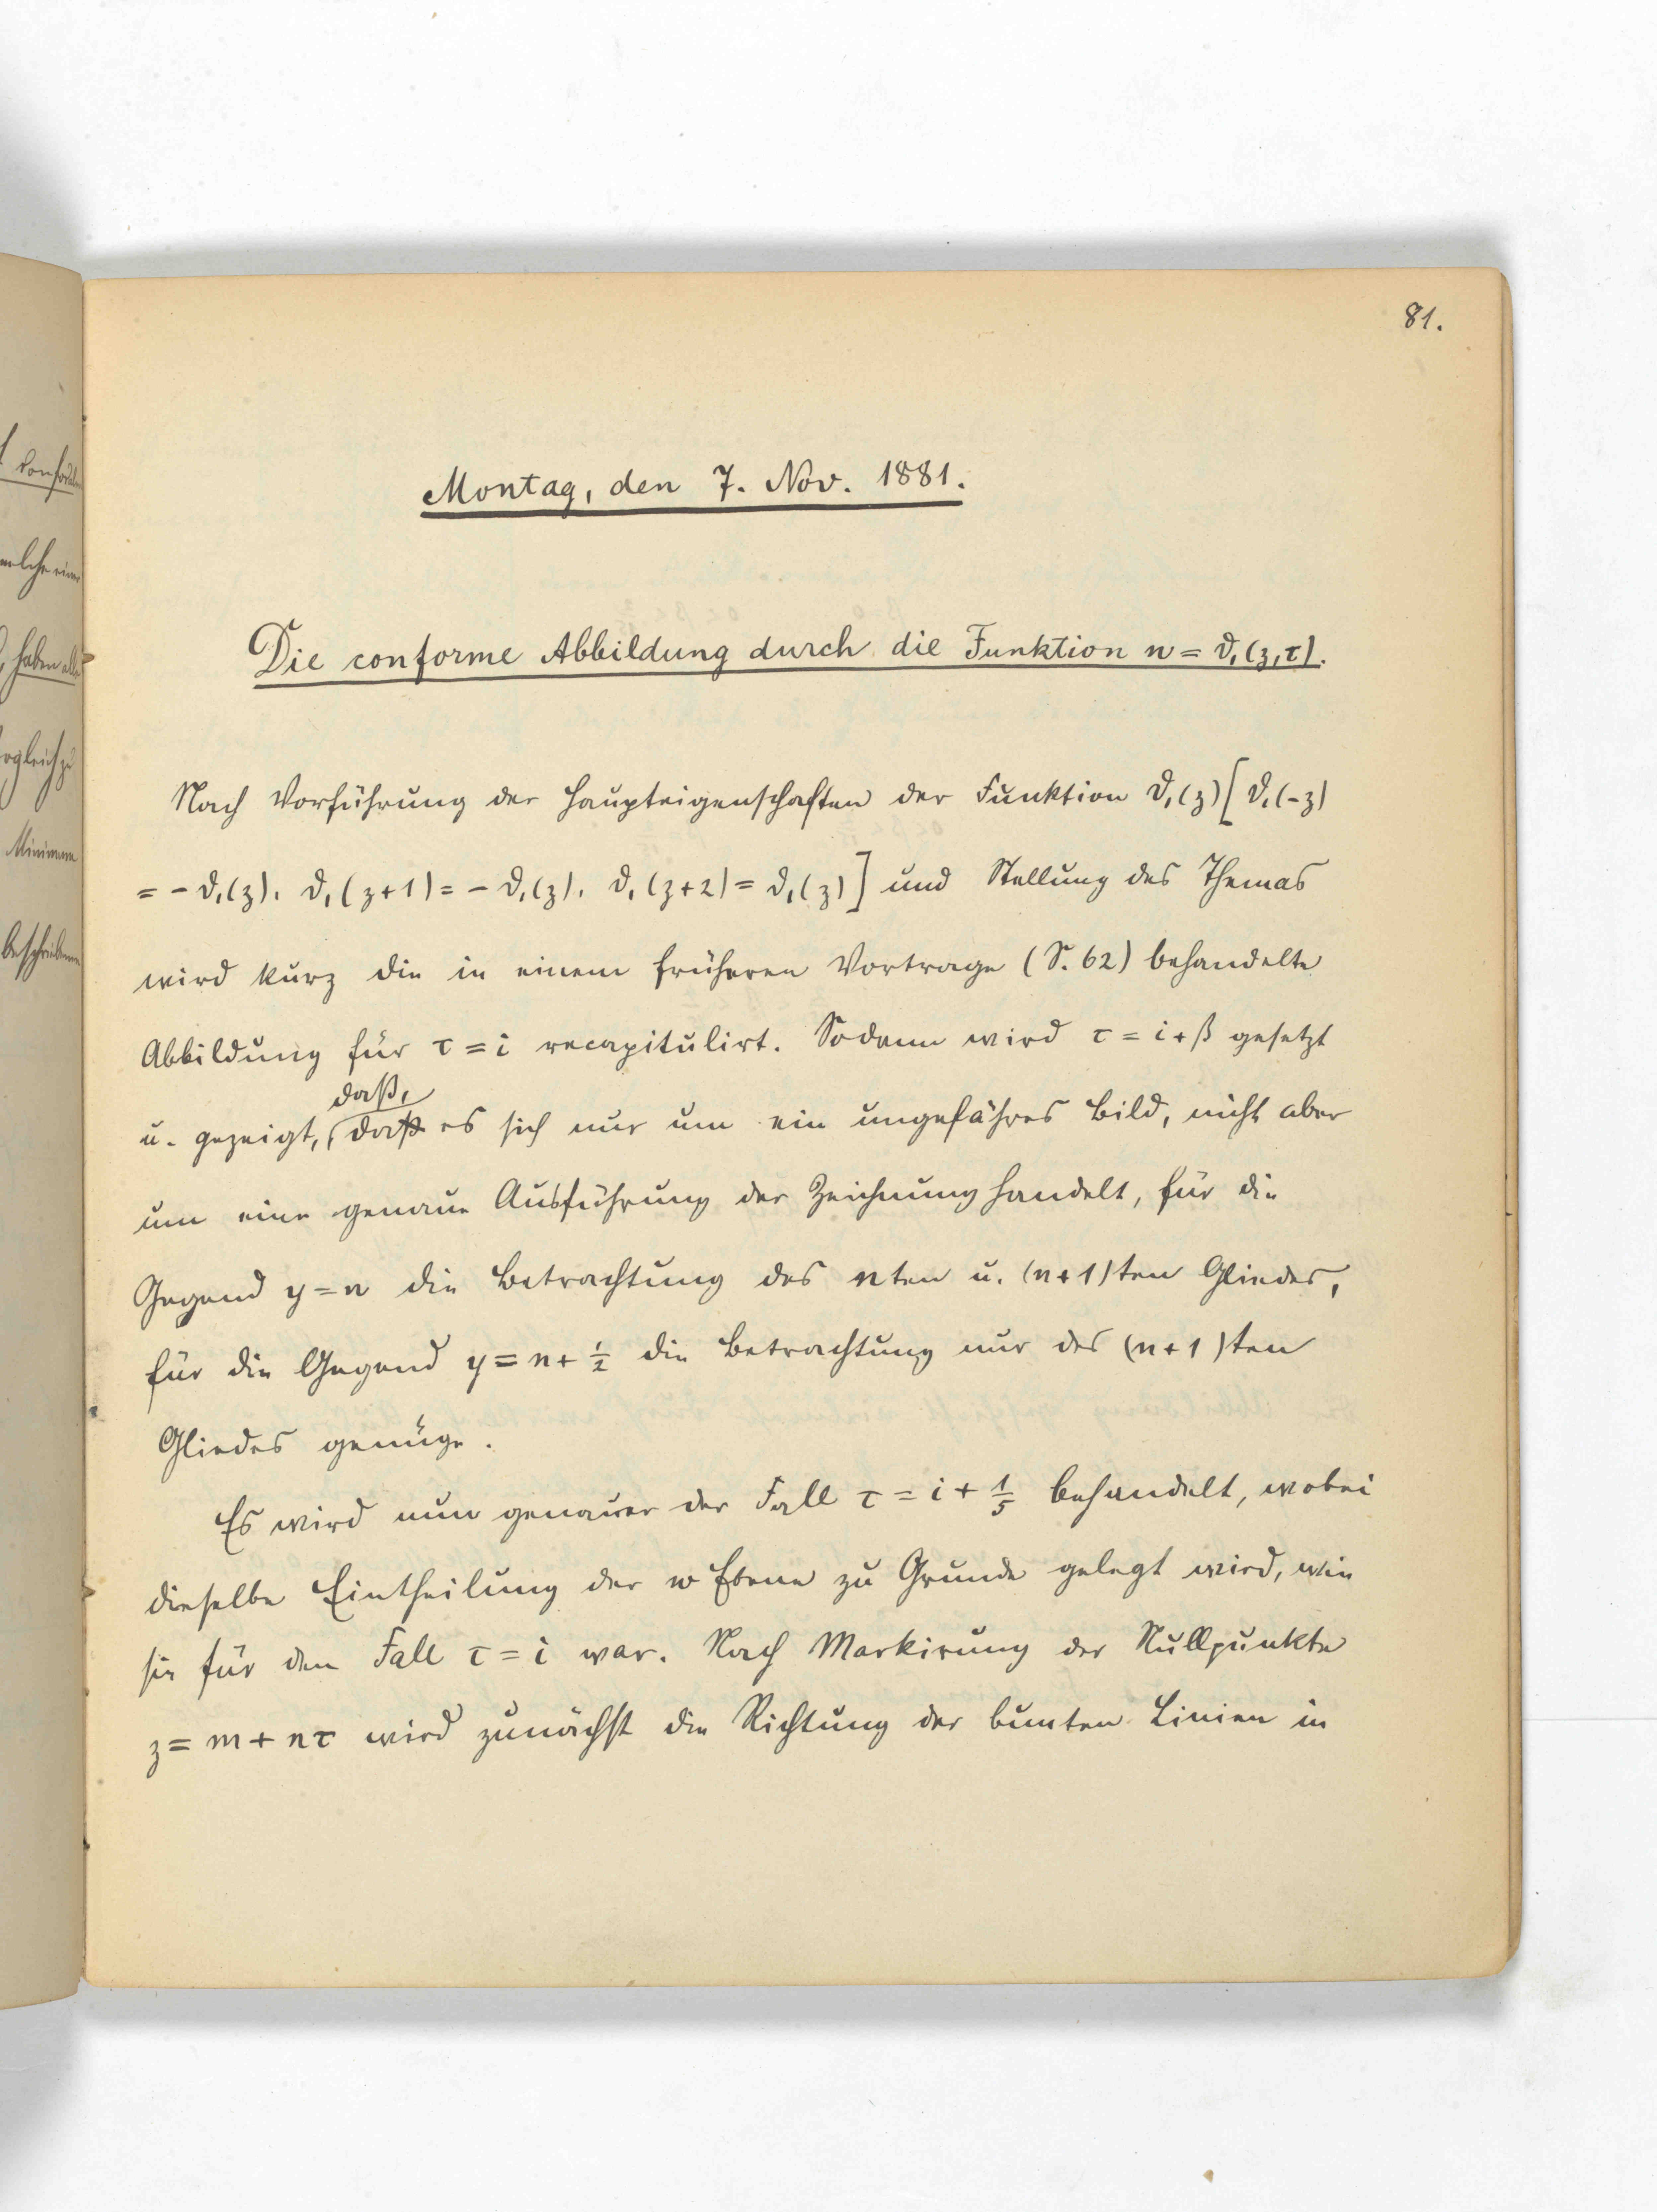 81.
Montag, den 7. Nov. 1881.
Die conforme Abbildung durch die Funktion w = ϑ₁(z,τ).
Nach Vorführung der Haupteigenschaften der Funktion ϑ₁(z) [ϑ₁(-z)
= - ϑ₁(z). ϑ₁(z+1) = - ϑ₁(z). ϑ₁(z+2) = ϑ₁(z)] und Stellung des Themas
wird kurz die in einem früheren Vortrage (S. 62) behandelte
Abbildung für τ = i recapitulirt. Sodann wird τ = i + β gesetzt
daß,
u. gezeigt, daß es sich nur um ein ungefähres Bild, nicht aber
um eine genaue Ausführung der Zeichnung handelt, für die
Gegend y = n die Betrachtung des nten u. (n+1)ten Gliedes,
für die Gegend y = n + ½ die Betrachtung nur des (n+1)ten
Gliedes genüge.
Es wird nun genauer der Fall τ = i + 1/5 behandelt, wobei
dieselbe Eintheilung der w Ebene zu Grunde gelegt wird, wie
sie für den Fall τ = i war. Nach Markirung der Nullpunkte
z = m + nτ wird zunächst die Richtung der bunten Linien in